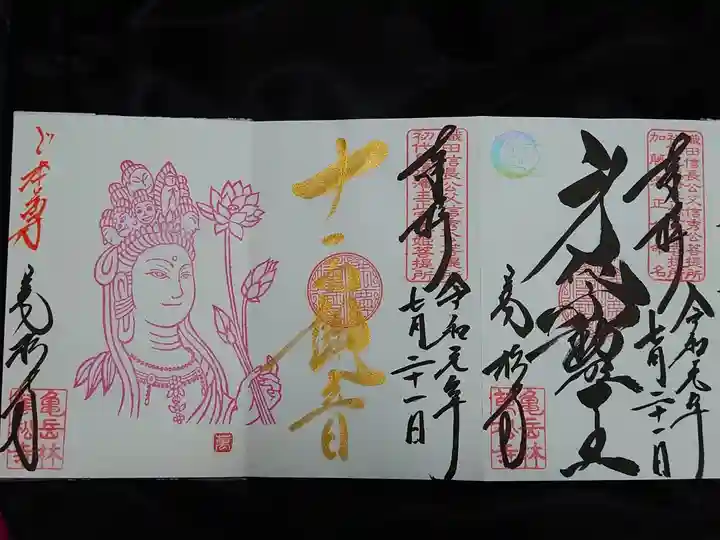 奉拝
織田信長公父信秀公菩提所
加藤清正
命名
令和元年
七月二十一日
身代
王
萬松寺
亀岳林
萬松寺
奉拝
織田信長公父信秀公菩提所
初代尾張藩主正室春姫菩提所
令和元年
七月二十一日
十一面観音
ご本尊
萬松寺
亀岳林
萬松寺